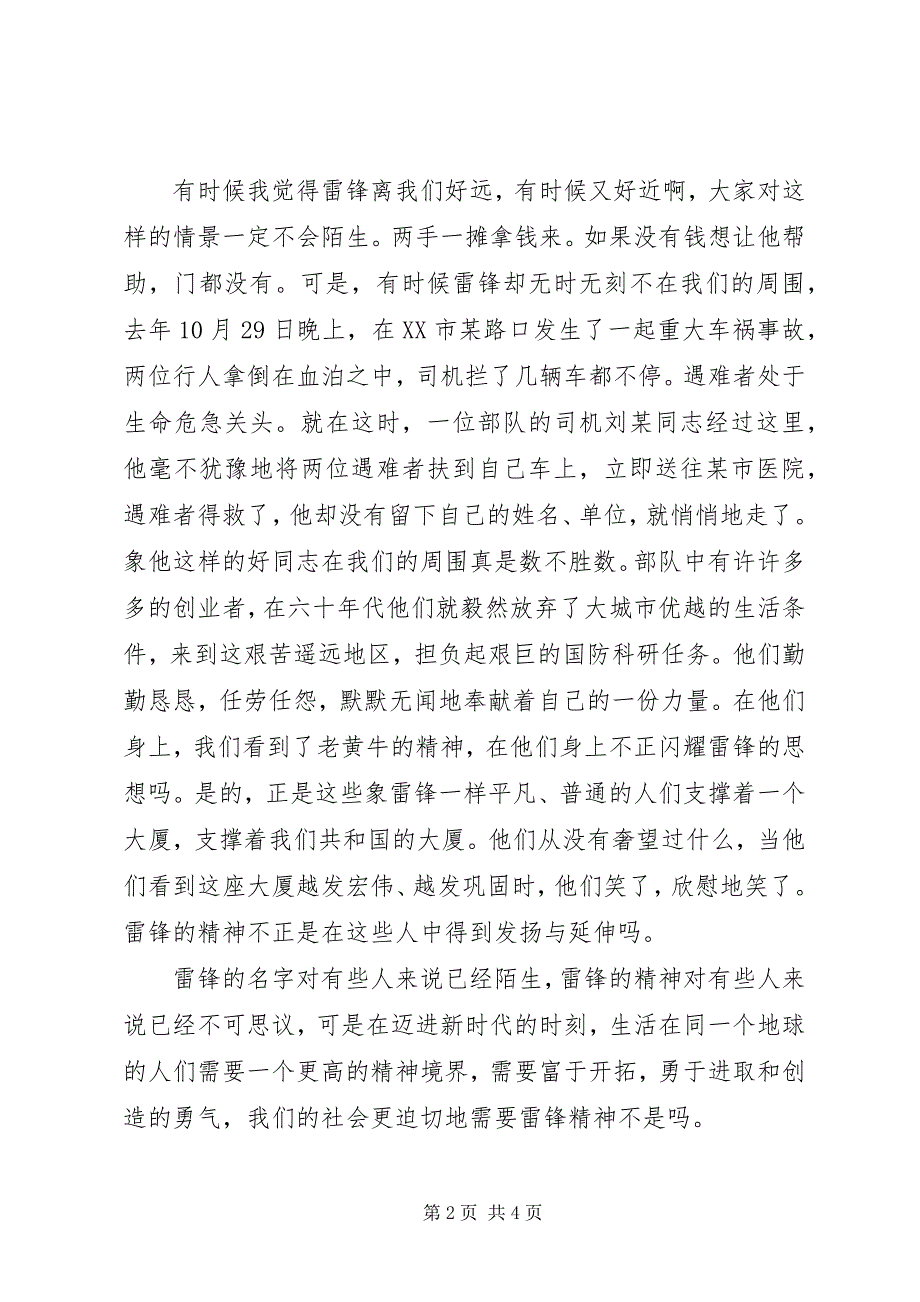 有时候我觉得雷锋离我们好远，有时候又好近啊，大家对这
样的情景一定不会陌生。两手一摊拿钱来。如果没有钱想让他帮
助，门都没有。可是，有时候雷锋却无时无刻不在我们的周围，
去年 10 月 29 日晚上，在 XX 市某路口发生了一起重大车祸事故，
两位行人拿倒在血泊之中，司机拦了几辆车都不停。遇难者处于
生命危急关头。就在这时，一位部队的司机刘某同志经过这里，
他毫不犹豫地将两位遇难者扶到自己车上，立即送往某市医院，
遇难者得救了，他却没有留下自己的姓名、单位，就悄悄地走了。
象他这样的好同志在我们的周围真是数不胜数。部队中有许许多
多的创业者，在六十年代他们就毅然放弃了大城市优越的生活条
件，来到这艰苦遥远地区，担负起艰巨的国防科研任务。他们勤
勤恳恳，任劳任怨，默默无闻地奉献着自己的一份力量。在他们
身上，我们看到了老黄牛的精神，在他们身上不正闪耀雷锋的思
想吗。是的，正是这些象雷锋一样平凡、普通的人们支撑着一个
大厦，支撑着我们共和国的大厦。他们从没有奢望过什么，当他
们看到这座大厦越发宏伟、越发巩固时，他们笑了，欣慰地笑了。
雷锋的精神不正是在这些人中得到发扬与延伸吗。
雷锋的名字对有些人来说已经陌生，雷锋的精神对有些人来
说已经不可思议，可是在迈进新时代的时刻，生活在同一个地球
的人们需要一个更高的精神境界，需要富于开拓，勇于进取和创
造的勇气，我们的社会更迫切地需要雷锋精神不是吗。
第 2 页 共 4 页